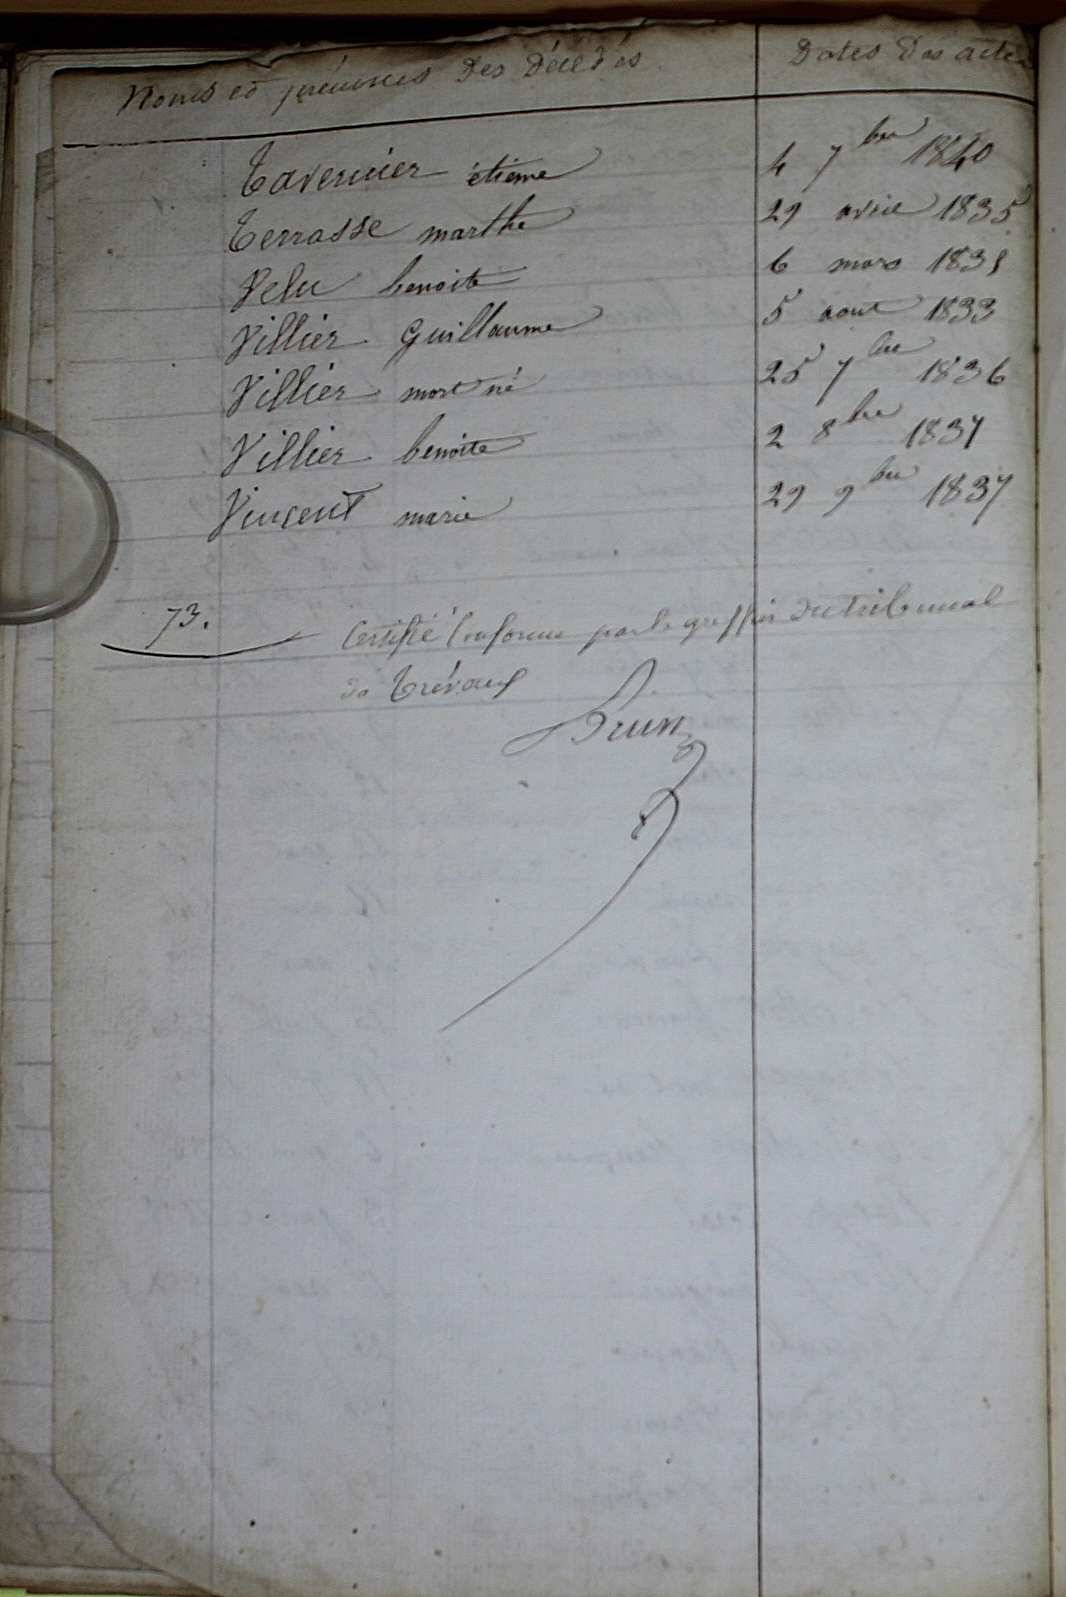 Noms et prénoms des Décédés Dates des actes
Tavernier étienne 4 7bre 1840
Terrasse marthe 29 avril 1835
Velu benoite 6 mars 1835
Villier Guillaume 5 aout 1833
Villier mort né 25 7bre 1836
Villier benoite 2 8bre 1837
Vincent marie 29 9bre 1837
73. Certifié Conforme par le greffier du tribunal
de Trévoux